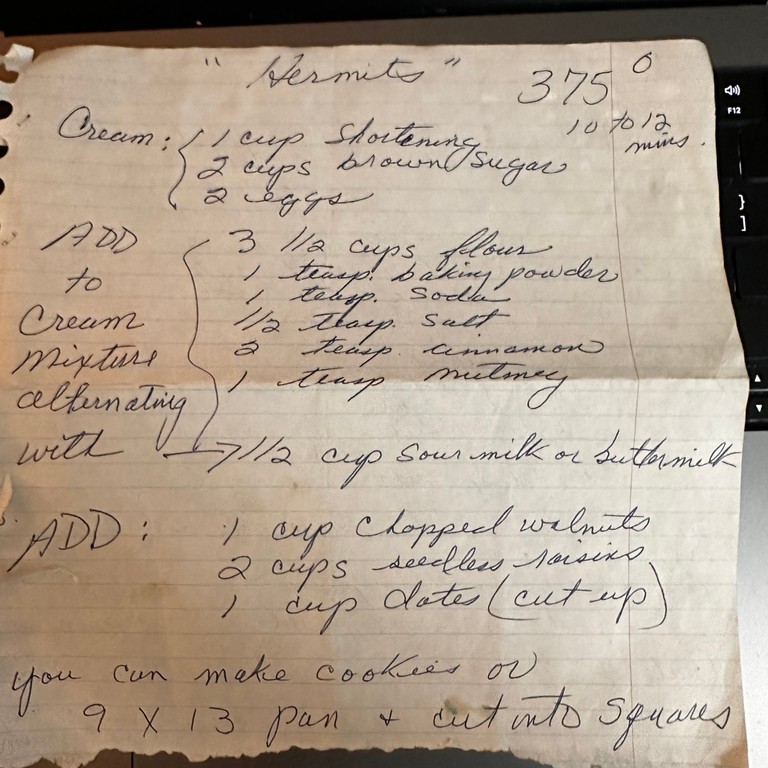 "Hermits"
375°
10 to 12
mins.
Cream: 1 cup Shortening
2 cups brown Sugar
2 eggs
ADD to Cream Mixture alternating with
3 1/2 cups flour
1 teasp. baking powder
1 teasp. Soda
1/2 teasp. Salt
2 teasp cinnamon
1 teasp nutmeg
→ 1/2 cup Sour milk or buttermilk
ADD: 1 cup chopped walnuts
2 cups seedless raisins
1 cup dates (cut up)
you can make cookies or
9 X 13 pan + cut into Squares
F12
}
]